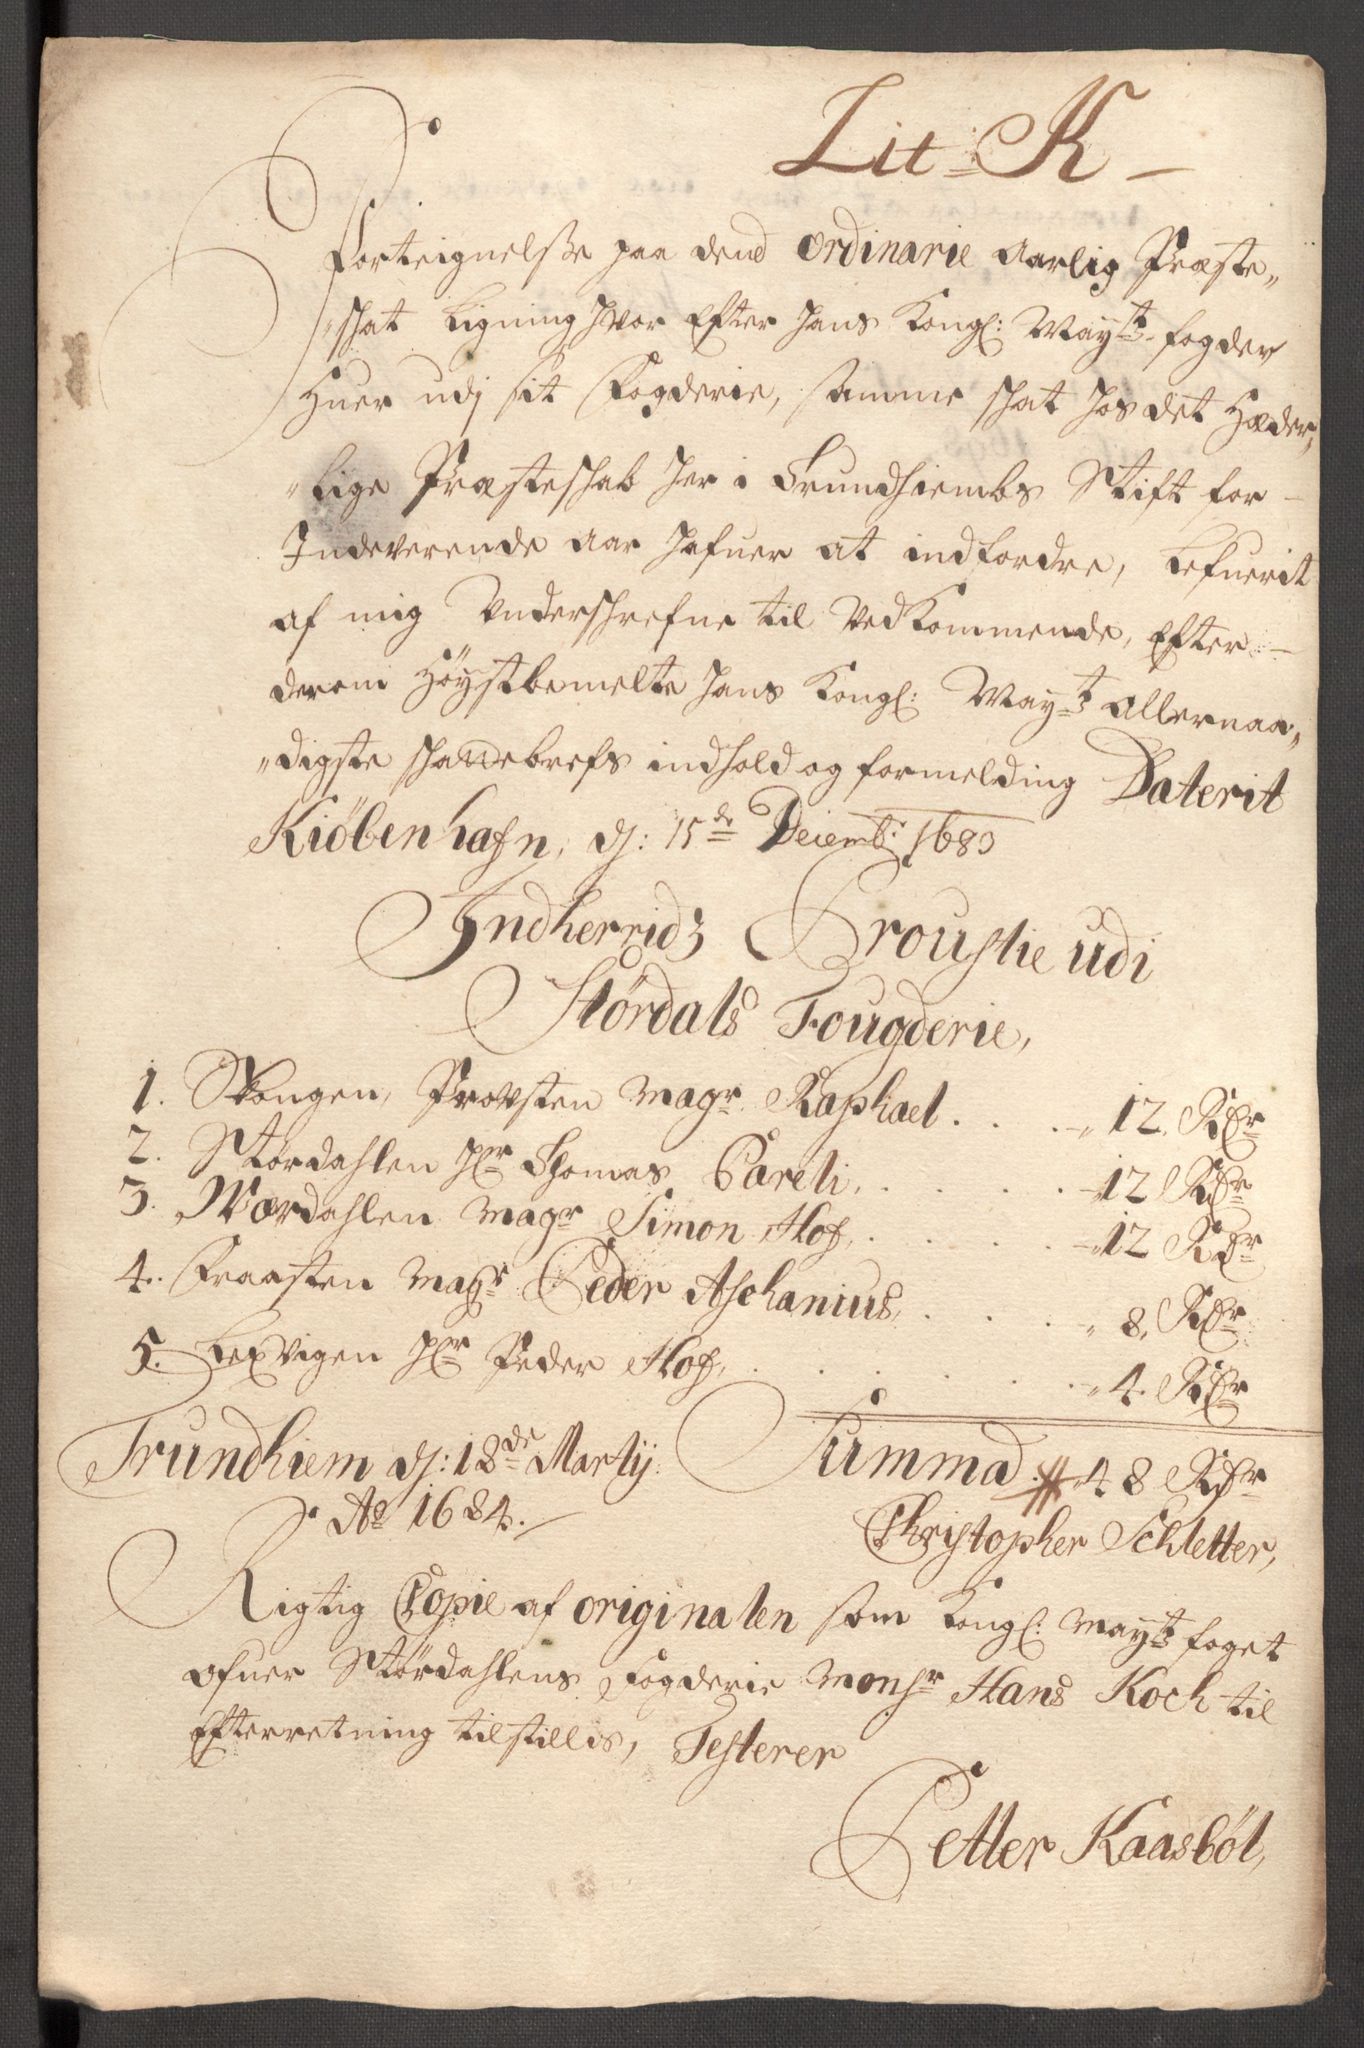 Lit. K
Forteignelsse paa dend Ordinarie Aarlig Præste„
„schat Ligning hvor Efter hans Kongl: Mayts. fogder
Huer udj sit Fogderie, samme schat hos det Hæder„
„lige Præsteschab her i Trundhiembs Stift for
Indeverende Aar hafuer at indfordre, Lefuerit
af mig Underschrefne til Vedkommende, Efter
derom Höystbemelte hans Kongl: Mayts Allernaa„
„digste schattebrefs indhold og formelding Daterit
Kiöbenhafn, dj: 15de Decemb: 1683
Indherridz Proustie udi
Størdals Fougderie,
1. Skongen, Provsten Magr. Raphael . . . „12. Rdr
2. Størdahlen hr Thomas Pareli, . . . . „12 Rdr
3. Wærdahlen Magr Simon Hof, . . . . „12 Rdr
4. Fraasten Magr Peder Aschanius, . . . „8. Rdr
5. Lexvigen hr Peder Hof, . . . . . . „4. Rdr
Trundhiem dj: 18de Martij Summa „48 Rdr
Ao 1684. Christopher Schletter,
Rigtig Copie af originalen som Kongl: Mayts foget
ofuer Størdahlens Fogderie Monsr Hans Koch til
Efterretning tilstillis, Testerer
Petter Kaasböl,